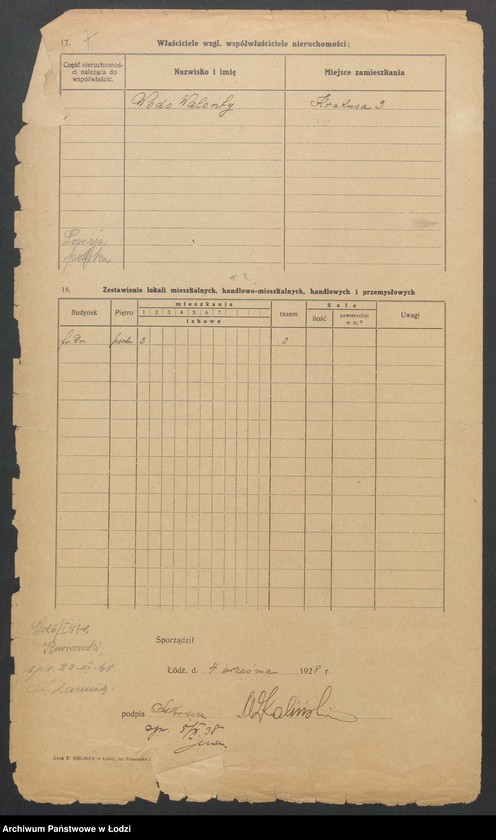 17.
Właściciele wzgl. współwłaściciele nieruchomości:
Część nieruchomoś-
ci należąca do
współwłaścic.
Nazwisko i imię
Miejsce zamieszkania
Wodo Walenty
Krakusa 3
18.
Zestawienie lokali mieszkalnych, handlowo-mieszkalnych, handlowych i przemysłowych
Budynek
Piętro
mieszkania
1 2 3 4 5 6 7
izbowe
razem
Sale
ilość
powierzchni
w m.²
Uwagi
parter 3 3
Sporządził
Łódź, d. 4 września 1928 r.
22-XI-48.
podpis
Kaliński
spr. 5/X 38
Archiwum Państwowe w Łodzi